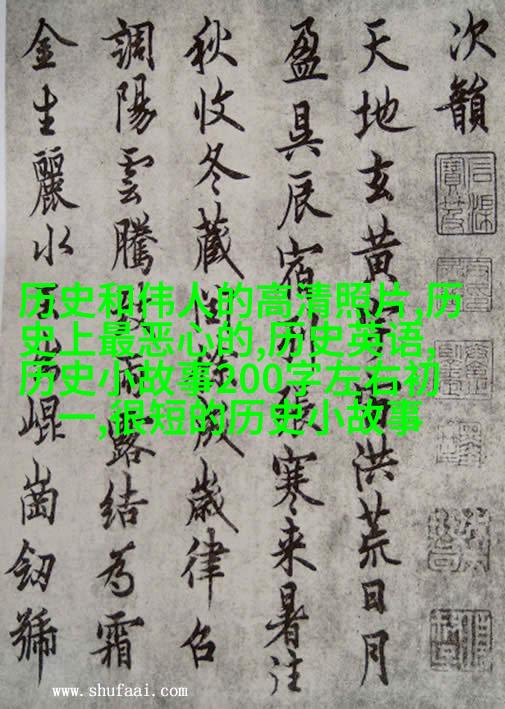 次韻
天地玄黄洪荒日月
盈昃辰宿列張寒来暑往
秋收冬藏成歲律召
調陽雲騰雨露結為霜
金生麗水出崐崗劒號
历史和伟人的高清照片,历
史上最恶心的,历史英语,
历史小故事200字左右初
一,很短的历史小故事
www.shufaai.com